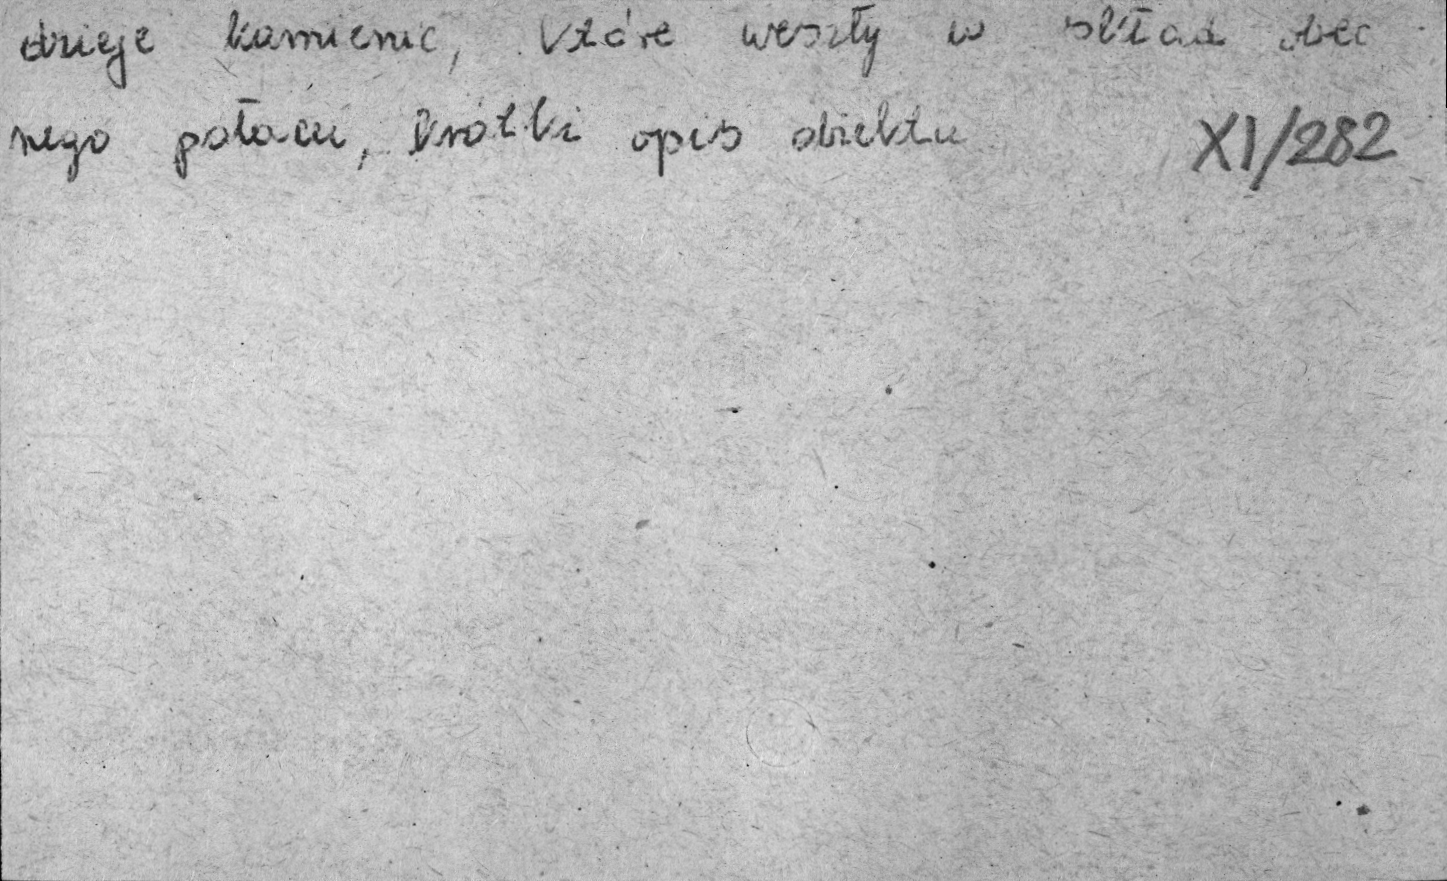 dzieje kamienic, które weszły w skład obec
nego pałacu, krótki opis obiektu XI/282